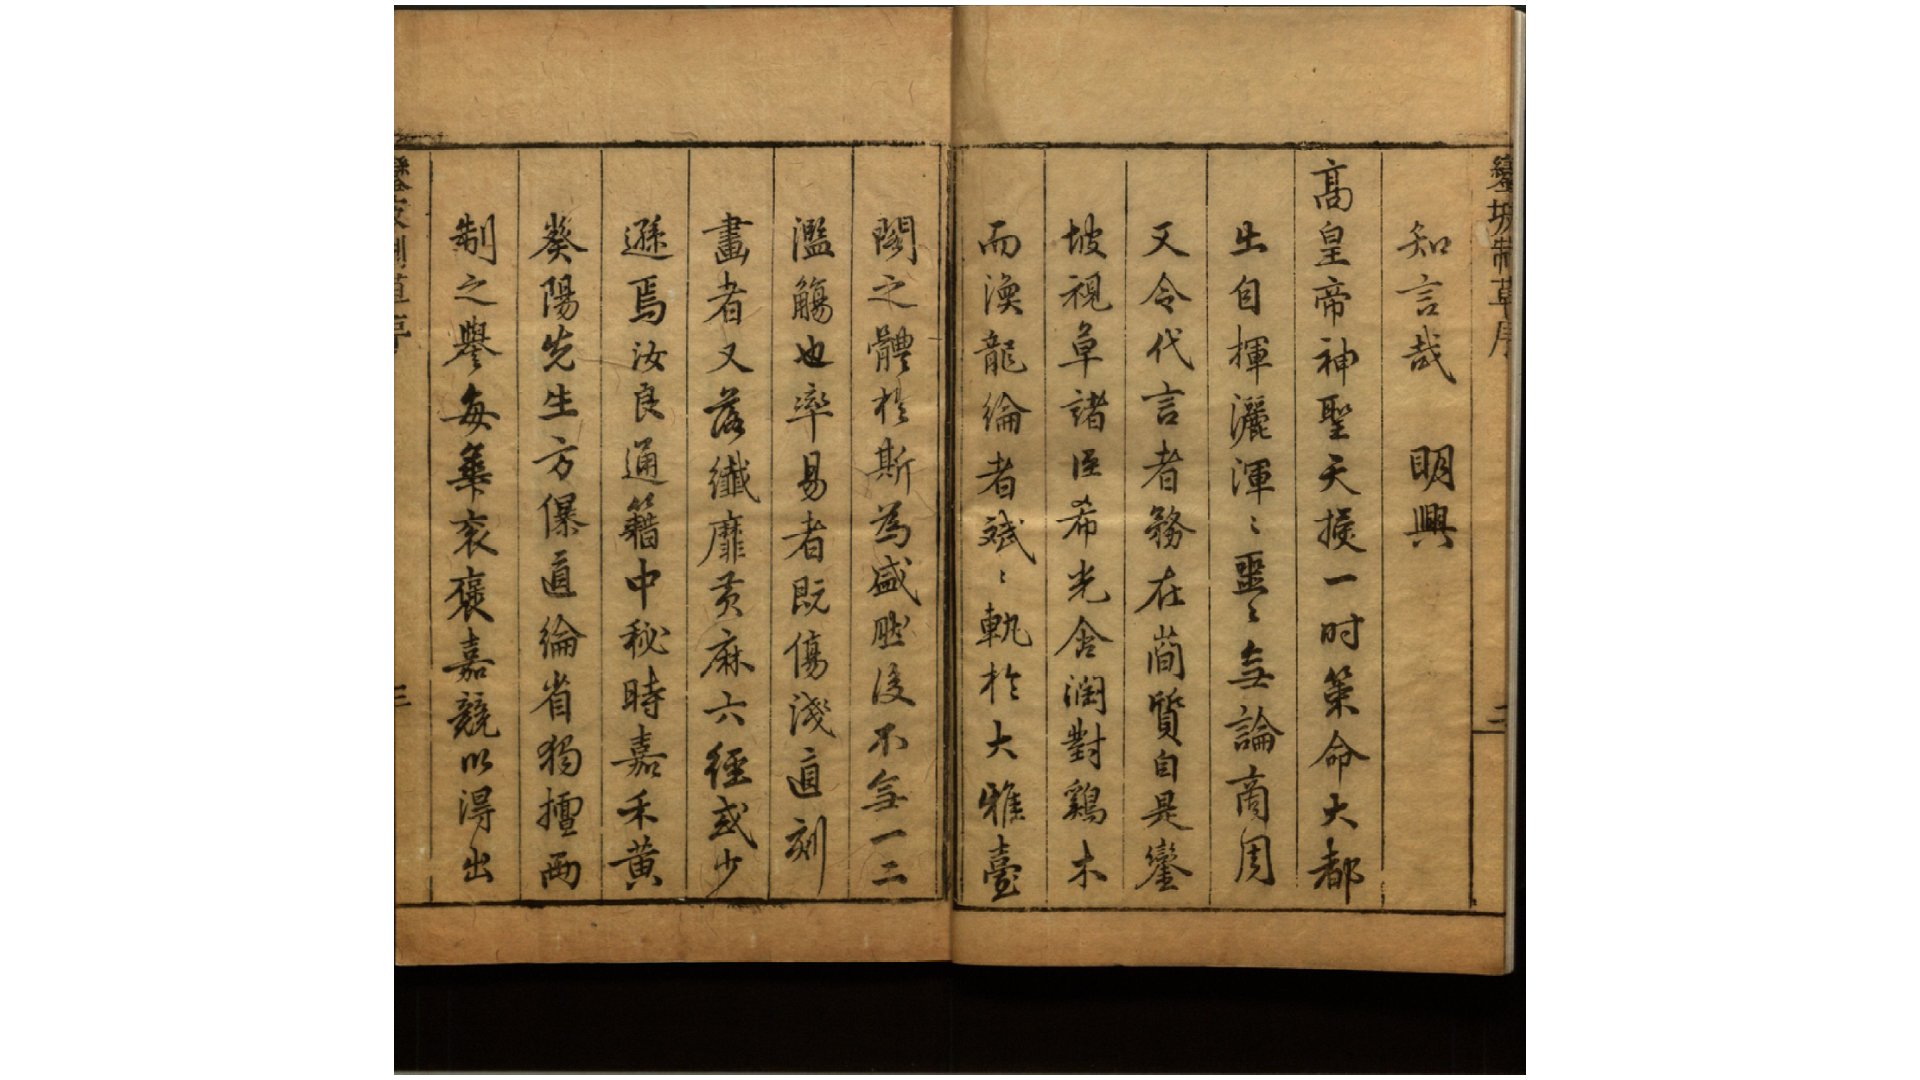 鑾坡制草序 二
知言哉 明興
高皇帝神聖天挨一时策命大都
出自揮灑渾〻噩〻無論商周
又令代言者務在蕳質自是鑾
坡視草諸臣希光含潤對鷄木
而渙龍綸者斌〻軌於大雅臺
閣之體於斯為盛然後不無一二
濫觴也率易者既傷淺直刻
畫者又落纖靡黃麻六經或少
遜焉汝良通籍中秘時嘉禾黄
葵陽先生方儤直綸省獨擅兩
制之譽每華衮褒嘉競以得出
鑾坡制草序 三